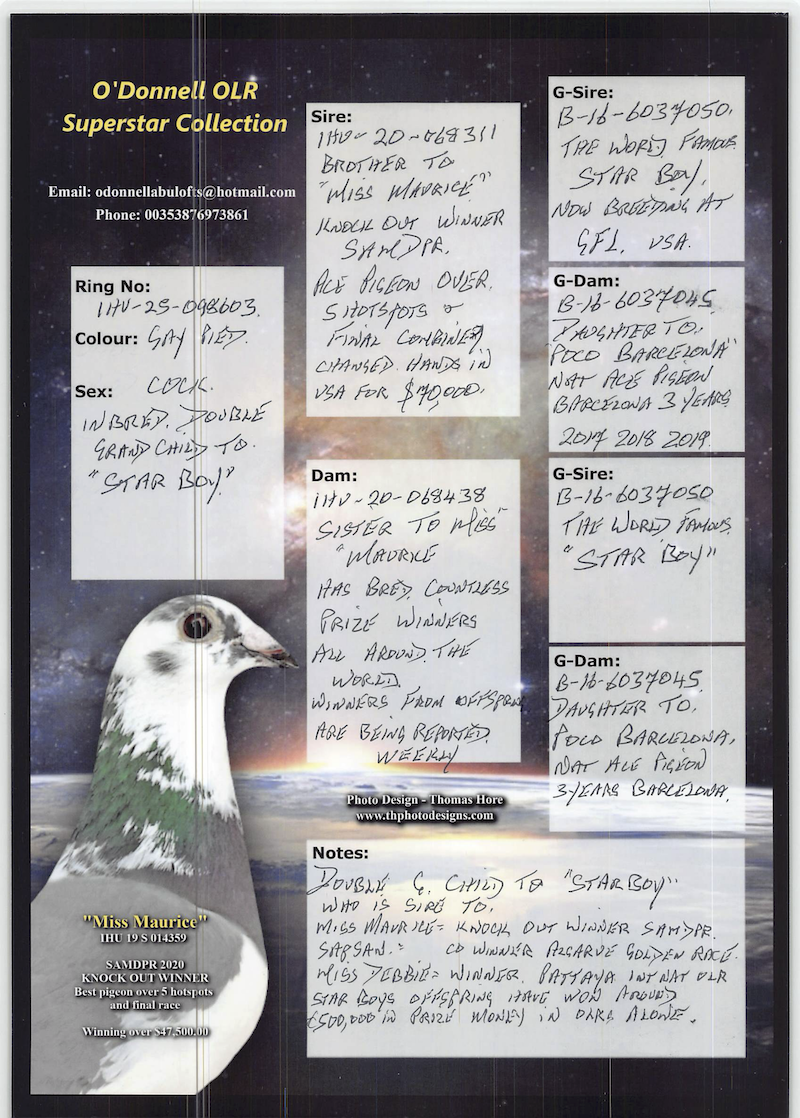 O'Donnell OLR
Superstar Collection
Email: odonnellabulofts@hotmail.com
Phone: 00353876973861
Ring No:
IHU-25-098603.
Colour: GAY PIED.
Sex: COCK.
INBRED. DOUBLE
GRAND CHILD TO.
"STAR BOY."
Sire:
IHU-20-068311
BROTHER TO
"MISS MAURICE"
KNOCK OUT WINNER
SAMDPR.
ACE PIGEON OVER.
5 HOTSPOTS &
FINAL COMBINED
CHANGED HANDS IN
USA FOR $70,000.
Dam:
IHU-20-068438
SISTER TO MISS"
"MAURICE
HAS BRED. COUNTLESS
PRIZE WINNERS
ALL AROUND. THE
WORLD.
WINNERS FROM OFFSPRING
ARE BEING REPORTED.
WEEKLY
G-Sire:
B-16-6037050.
THE WORLD FAMOUS.
STAR BOY.
NOW BREEDING AT
GFL. USA.
G-Dam:
B-16-6037045.
DAUGHTER TO.
"POCO BARCELONA"
NAT ACE PIGEON
BARCELONA 3 YEARS
2017 2018 2019.
G-Sire:
B-16-6037050
THE WORLD FAMOUS.
"STAR BOY"
G-Dam:
B-16-6037045.
DAUGHTER TO.
POCO BARCELONA.
NAT ACE PIGEON
3 YEARS BARCELONA.
Photo Design - Thomas Hore
www.thphotodesigns.com
Notes:
DOUBLE G. CHILD TO "STAR BOY"
WHO IS SIRE TO.
MISS MAURICE = KNOCK OUT WINNER SAMDPR.
SAPSAN. = CO WINNER ALGARVE GOLDEN RACE.
MISS DEBBIE = WINNER. PATTAYA INT NAT OLR
STAR BOYS OFFSPRING HAVE WON AROUND
€500,000 IN PRIZE MONEY IN OLRS ALONE.
"Miss Maurice"
IHU 19 S 014359
SAMDPR 2020
KNOCK OUT WINNER
Best pigeon over 5 hotspots
and final race
Winning over $47,500.00